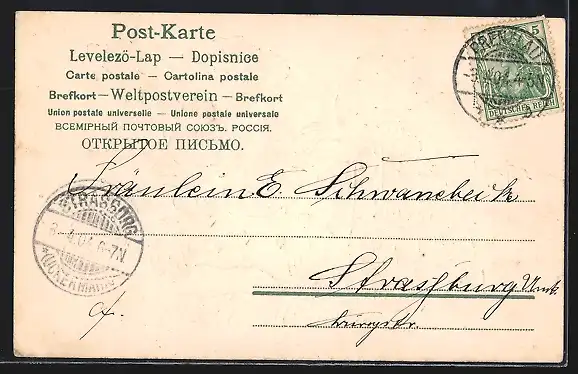 Post-Karte
Levelező-Lap — Dopisnice
Carte postale — Cartolina postale
Brefkort — Weltpostverein — Brefkort
Union postale universelle — Unione postale universale
ВСЕМІРНЫЙ ПОЧТОВЫЙ СОЮЗЪ. РОССІЯ.
ОТКРЫТОЕ ПИСЬМО.
PRENZLAU
5
DEUTSCHES REICH
Fräulein E. Schwanebeck
STRASBURG
(UCKERMARK)
Strassburg Umk.